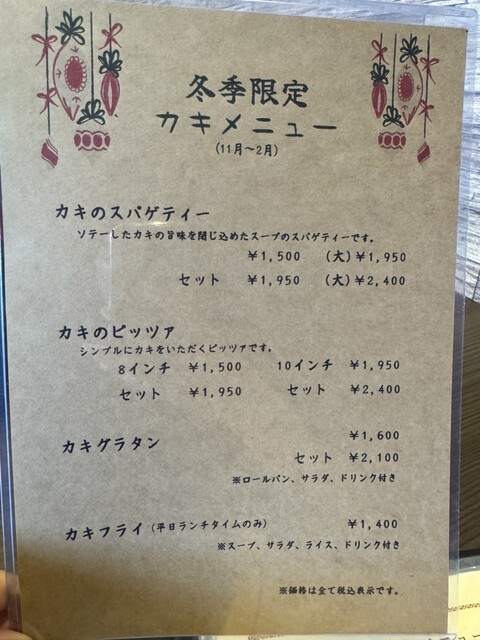 冬季限定
カキメニュー
(11月～2月)
カキのスパゲティー
ソテーしたカキの旨味を閉じ込めたスープのスパゲティーです。
￥1,500 (大)￥1,950
セット ￥1,950 (大)￥2,400
カキのピッツァ
シンプルにカキをいただくピッツァです。
8インチ ￥1,500 10インチ ￥1,950
セット ￥1,950 セット ￥2,400
カキグラタン ￥1,600
セット ￥2,100
※ロールパン、サラダ、ドリンク付き
カキフライ(平日ランチタイムのみ) ￥1,400
※スープ、サラダ、ライス、ドリンク付き
※価格は全て税込表示です。